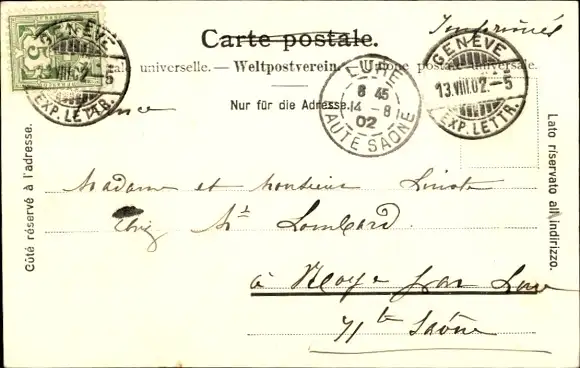 Imprimés
Carte postale.
GENÈVE
5
VIII.02.-5
EXP. LETTR.
ale universelle. — Weltpostverein. — Unione postale universale.
Nur für die Adresse.
LURE
8 45
14 - 8
02
HAUTE SAONE
GENÈVE
13.VIII.02.-5
EXP. LETTR.
Côté réservé à l'adresse.
Lato riservato all'indirizzo.
Madame et Monsieur
Chez Mr Lombard
à par Lure
Hte Saône